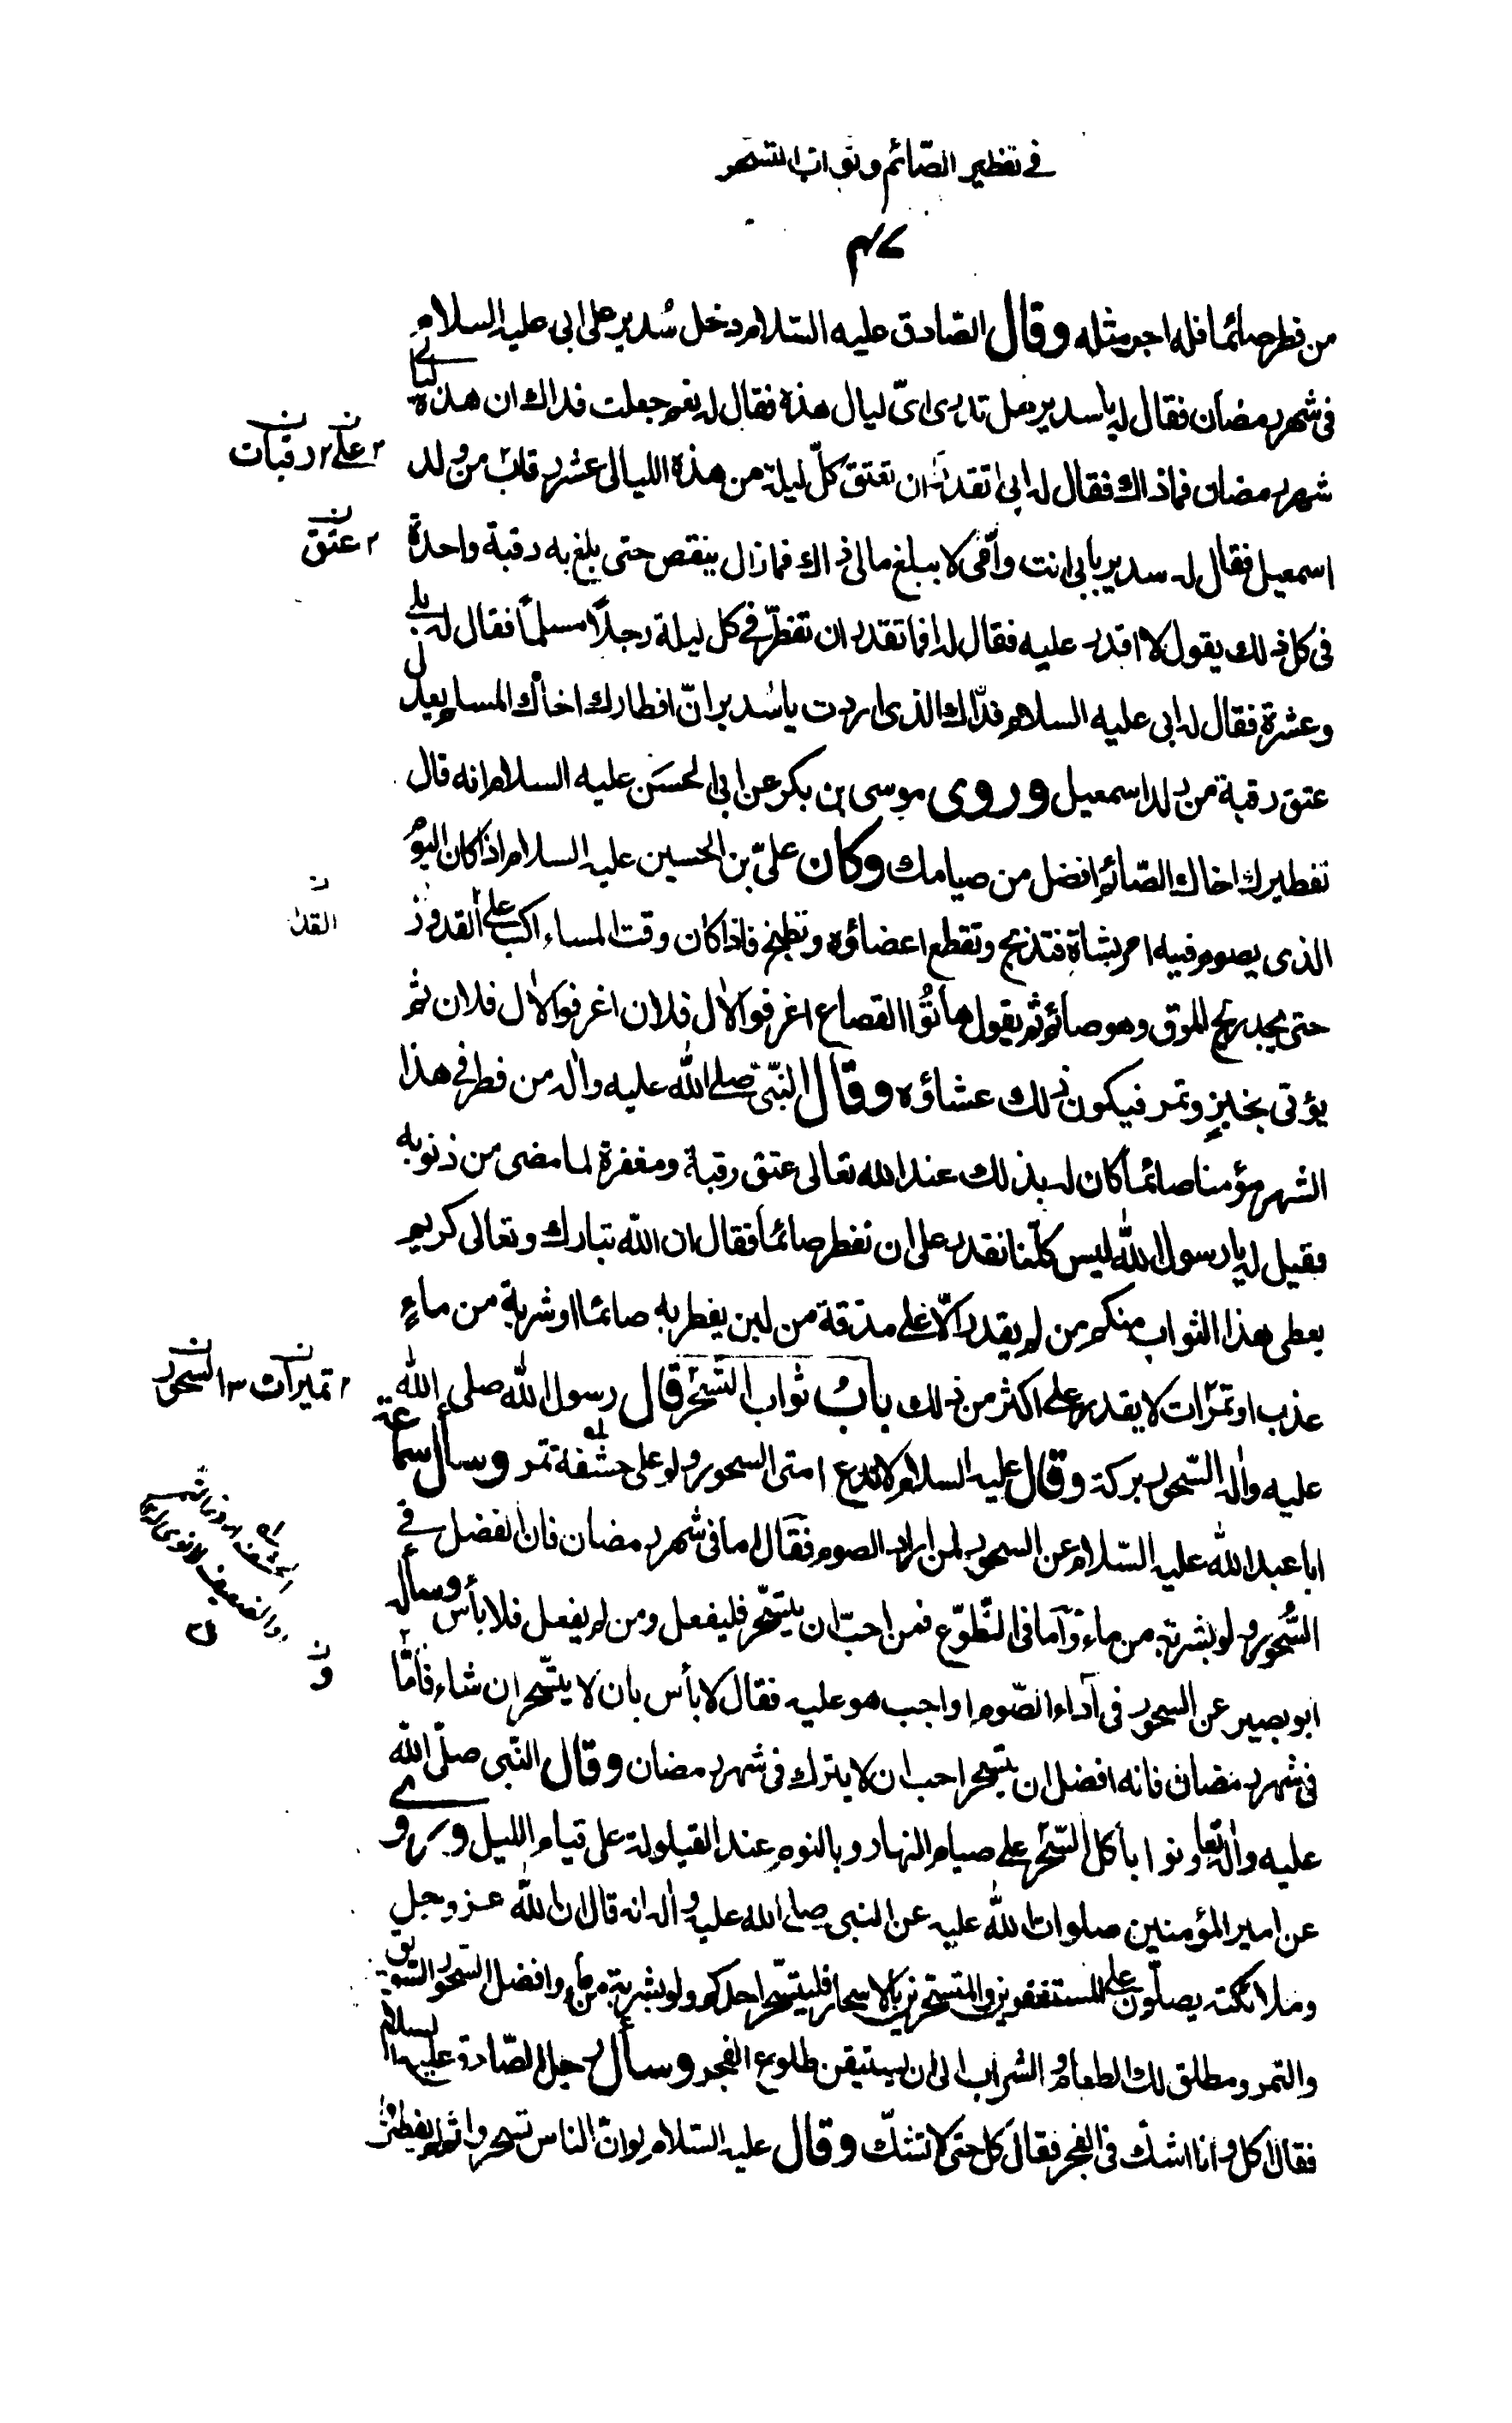 في تفطير الصّائم وثواب التسحر
من فطر صائما فله اجر مثله وقال الصّادق عليه السّلام دخل سُدير على ابى عليه السلام
فى شهر رمضان فقال له يا سدير هل تدرى اىّ ليال هذه فقال له نعم جعلت فداك ان هذه ليالي
شهر رمضان فما ذاك فقال له ابى اتقدر ان تعتق كلّ ليلة من هذه الليالى عشر رقاب من ولد
۲ على ۲ رقبات
اسمعيل فقال له سدير بابى انت وامّى لا يبلغ مالى ذاك فما زال ينقص حتى بلغ به رقبة واحدة
۲ عتق
فى كل ذلك يقول لا اقدر عليه فقال له افما تقدر ان تفطّر في كل ليلة رجلاً مسلماً فقال له بلى
وعشرة فقال له ابى عليه السلام فذاك الذى اردت يا سُدير انّ افطارك اخاك المسلم يعدل
عتق رقبة من ولد اسمعيل وروى موسى بن بكر عن ابى الحسَن عليه السلام انه قال
تفطيرك اخاك الصّائم افضل من صيامك وكان علىّ بن الحسين عليه السلام اذا كان اليوم
الذى يصوم فيه امر بشاة فتذبح وتقطع اعضاؤه وتطبخ فاذا كان وقت المساء اكبّ على القدور
القدر
حتى يجد ريح المرق وهو صائم ثم يقول هاتُوا القصاع اغرفوا لاٰل فلان اغرفوا لاٰل فلان ثم
يؤتى بخبزٍ وتمر فيكون ذلك عشاؤه وقال النبّى صلى الله عليه واٰله من فطر في هذا
الشهر مؤمنا صائماً كان له بذلك عند الله تعالى عتق رقبة ومغفرة لما مضى من ذنوبه
فقيل له يا رسول الله ليس كلّنا نقدر على ان نفطر صائماً فقال ان الله تبارك وتعالى كريم
يعطى هذا الثواب منكم من لم يقدر الّا على مذقة من لبن يفطر به صائما او شربة من ماءٍ
عذب او تمرات لا يقدر على اكثر من ذلك بابُ ثواب التّسحّر قال رسول الله صلى الله
۲ تميرات ۳ السحور
عليه واٰله السّحور بركة وقال عليه السلام لا تدع امتى السحور ولو على حشفة تمر وسأل سماعة
ابا عبد الله عليه السّلام عن السحور لمن اراد الصوم فقال اما فى شهر رمضان فان الفضل في
السُّحور ولو بشربة من ماء وامّا فى التّطوّع فمن احبّ ان يتسحّر فليفعل ومن لم يفعل فلا بأس وسأله
ابو بصير عن السحور فى اداء الصّوم اواجب هو عليه فقال لا بأس بان لا يتسّحر ان شاء فامّا
فى شهر رمضان فانه افضل ان يتسحر احب ان لا يترك فى شهر رمضان وقال النّبى صلّى الله
عليه واٰله تعاونوا بأكل السّحر على صيام النهار وبالنوم عند القيلولة على قيام الليل وروي
عن امير المؤمنين صلوات الله عليه عن النبى صلى الله عليه واٰله انه قال ان الله عز وجل
وملائكته يصلّون على المستغفرين والمتسحّرين بالاسحار فليتسحّر احدكم ولو بشربة من ماء وافضل السّحور السّويق
والتمر ومطلق لك الطعام والشراب الى ان تستيقن طلوع الفجر وسأل رجل الصّادق عليه السلام
فقال اٰكل وانا اشك فى الفجر فقال كل حتى لا تشكّ وقال عليه السّلام لو انّ الناس تسحروا ثم لم يفطروا